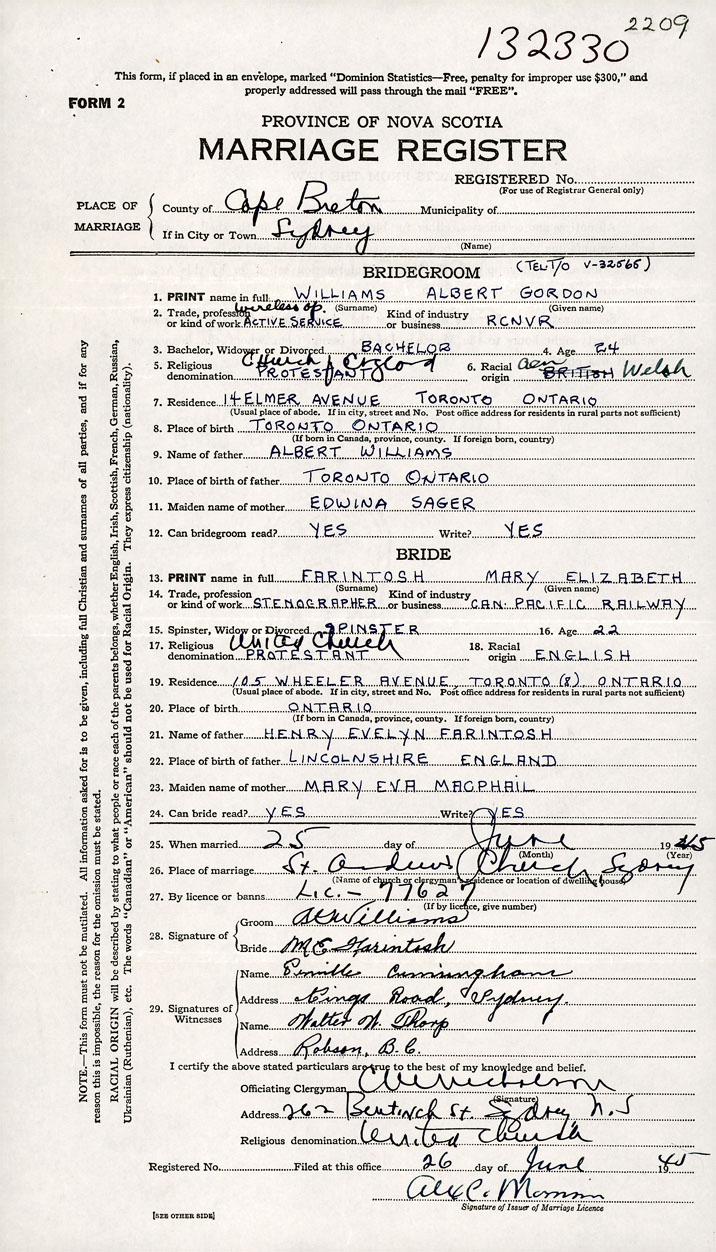 2209
132330
This form, if placed in an envelope, marked "Dominion Statistics—Free, penalty for improper use $300," and
properly addressed will pass through the mail "FREE".
FORM 2
PROVINCE OF NOVA SCOTIA
MARRIAGE REGISTER
REGISTERED No.
(For use of Registrar General only)
PLACE OF MARRIAGE
County of Cape Breton Municipality of
If in City or Town Sydney
(Name)
BRIDEGROOM (TEL T/O V-32565)
1. PRINT name in full WILLIAMS ALBERT GORDON
(Surname) (Given name)
2. Trade, profession or kind of work wireless op. ACTIVE SERVICE Kind of industry or business RCNVR
3. Bachelor, Widower or Divorced BACHELOR 4. Age 24
5. Religious denomination Church of England PROTESTANT 6. Racial origin BRITISH Welsh
7. Residence 14 ELMER AVENUE TORONTO ONTARIO
(Usual place of abode. If in city, street and No. Post office address for residents in rural parts not sufficient)
8. Place of birth TORONTO ONTARIO
(If born in Canada, province, county. If foreign born, country)
9. Name of father ALBERT WILLIAMS
10. Place of birth of father TORONTO ONTARIO
11. Maiden name of mother EDWINA SAGER
12. Can bridegroom read? YES Write? YES
BRIDE
13. PRINT name in full FARINTOSH MARY ELIZABETH
(Surname) (Given name)
14. Trade, profession or kind of work STENOGRAPHER Kind of industry or business CAN. PACIFIC RAILWAY
15. Spinster, Widow or Divorced SPINSTER 16. Age 22
17. Religious denomination United Church PROTESTANT 18. Racial origin ENGLISH
19. Residence 105 WHEELER AVENUE, TORONTO (8), ONTARIO
(Usual place of abode. If in city, street and No. Post office address for residents in rural parts not sufficient)
20. Place of birth ONTARIO
(If born in Canada, province, county. If foreign born, country)
21. Name of father HENRY EVELYN FARINTOSH
22. Place of birth of father LINCOLNSHIRE ENGLAND
23. Maiden name of mother MARY EVA MACPHAIL
24. Can bride read? YES Write? YES
25. When married 25 day of June 1945
(Month) (Year)
26. Place of marriage St. Andrews Church, Sydney
(Name of church or clergyman's residence or location of dwelling house)
27. By licence or banns L.C. - 77627
(If by licence, give number)
28. Signature of
Groom AGWilliams
Bride M.E. Farintosh
29. Signatures of Witnesses
Name Cunningham
Address Kings Road, Sydney.
Name Walter W. Thorp
Address Robson, B.C.
I certify the above stated particulars are true to the best of my knowledge and belief.
Officiating Clergyman Nicholson
(Signature)
Address 262 Bentinck St. Sydney N.S
Religious denomination United Church
Registered No. Filed at this office 26 day of June 1945
Alex C.
Signature of Issuer of Marriage Licence
[SEE OTHER SIDE]
NOTE.—This form must not be mutilated. All information asked for is to be given, including full Christian and surnames of all parties, and if for any
reason this is impossible, the reason for the omission must be stated.
RACIAL ORIGIN will be described by stating to what people or race each of the parents belongs, whether English, Irish, Scottish, French, German, Russian,
Ukrainian (Ruthenian), etc. The words "Canadian" or "American" should not be used for Racial Origin. They express citizenship (nationality).